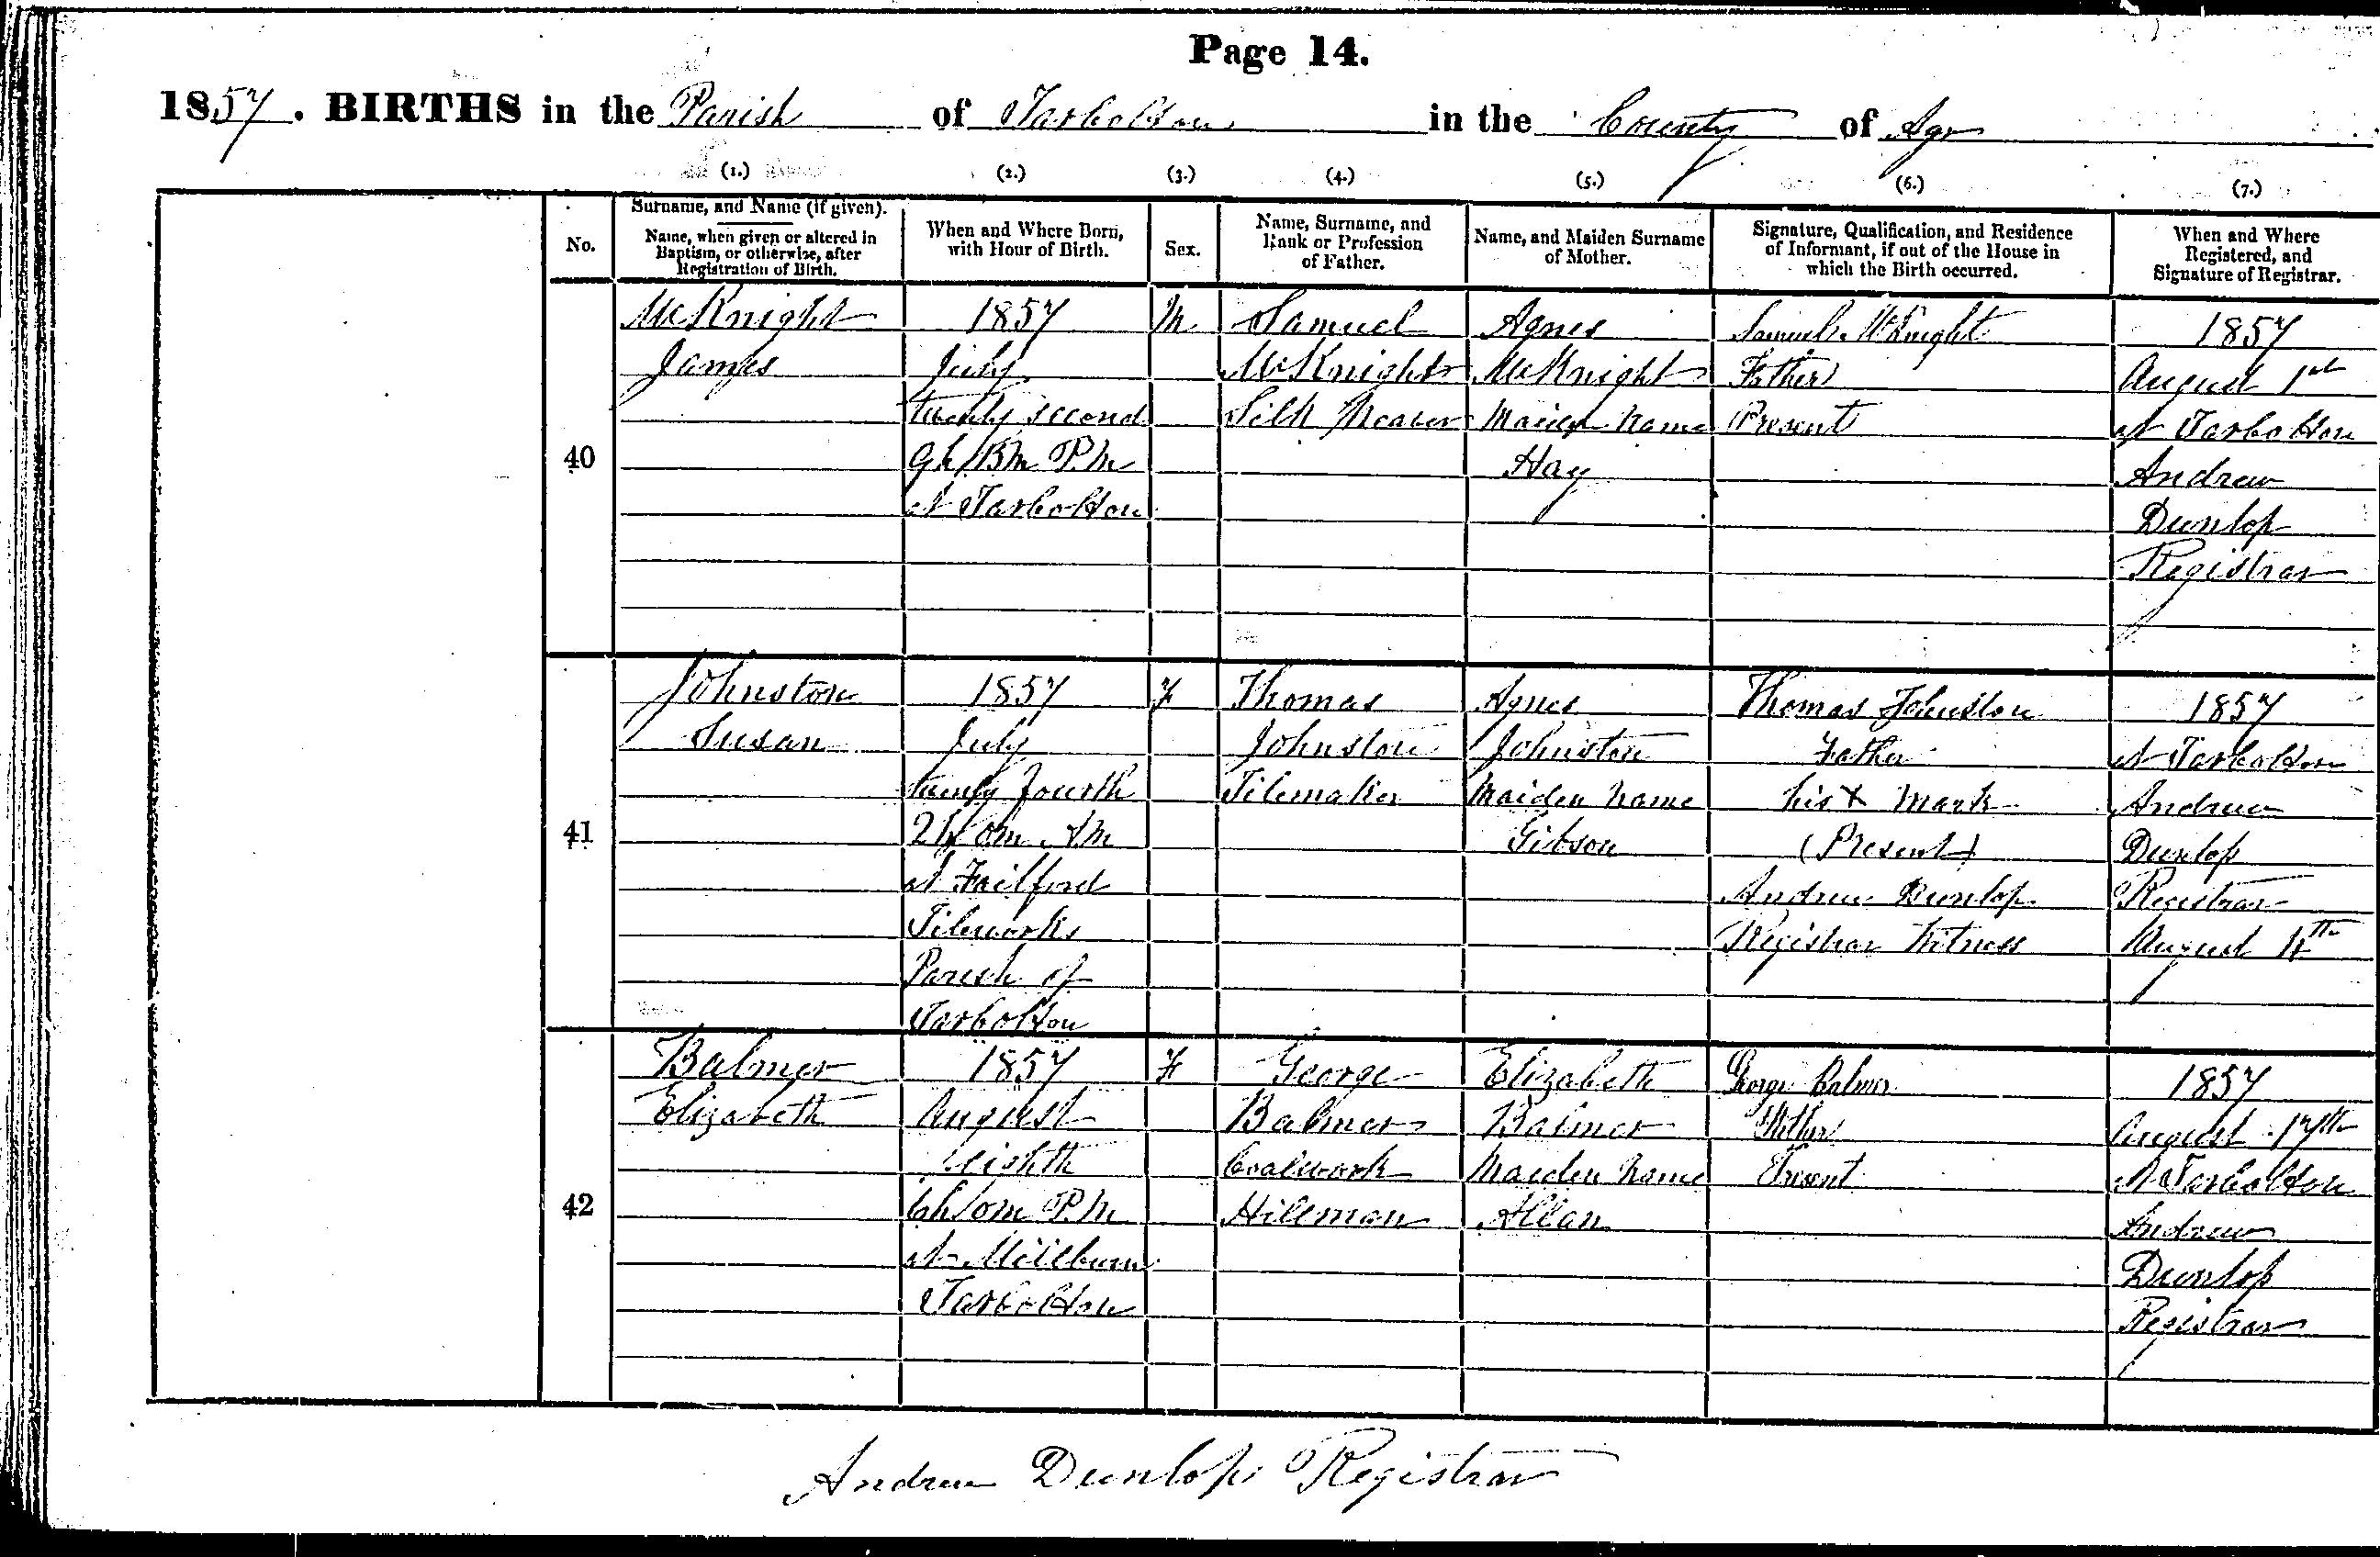 Page 14.
1857. BIRTHS in the Parish of Tarbolton in the County of Ayr
(1.) (2.) (3.) (4.) (5.) (6.) (7.)
No.
Surname, and Name (if given).
Name, when given or altered in
Baptism, or otherwise, after
Registration of Birth.
When and Where Born,
with Hour of Birth.
Sex.
Name, Surname, and
Rank or Profession
of Father.
Name, and Maiden Surname
of Mother.
Signature, Qualification, and Residence
of Informant, if out of the House in
which the Birth occurred.
When and Where
Registered, and
Signature of Registrar.
40
McKnight
James
1857
July
twenty second
9h P.M.
at Tarbolton
M
Samuel
McKnight
Silk Weaver
Agnes
McKnight
Maiden Name
Hay
Samuel McKnight
Father
Present
1857
August 1st
at Tarbolton
Andrew
Dunlop
Registrar
41
Johnston
Susan
1857
July
twenty fourth
2h 0m A.M
at Failford
Tileworks
Parish of
Tarbolton
F
Thomas
Johnston
Tilemaker
Agnes
Johnston
Maiden Name
Gibson
Thomas Johnston
Father
his x mark
(Present)
Andrew Dunlop
Registrar Witness
1857
at Tarbolton
Andrew
Dunlop
Registrar
August
42
Balmer
Elizabeth
1857
August
eighth
6h 0m P.M
at Millburn
Tarbolton
F
George
Balmer
Coalwork
Hillman
Elizabeth
Balmer
Maiden Name
Allan
George Balmer
Father
Present
1857
August 17th
At Tarbolton
Andrew
Dunlop
Registrar
Andrew Dunlop Registrar